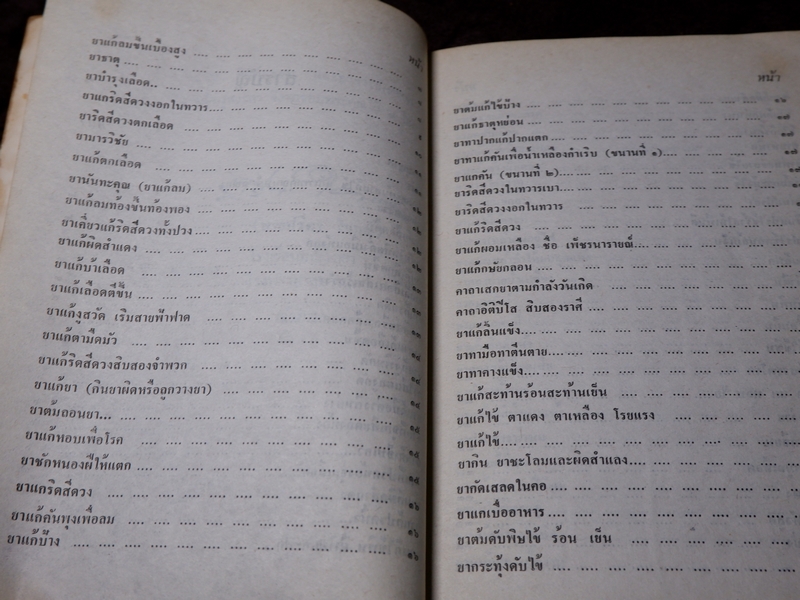 หน้า
ยาแก้ลมขึ้นเบื้องสูง .... .... .... .... .... .... ....
ยาธาตุ .... .... .... .... .... .... .... ....
ยาบำรุงเลือด.. .... .... .... .... .... .... ....
ยาแก้ริดสีดวงงอกในทวาร .... .... .... .... .... ....
ยาริดสีดวงตกเลือด .... .... .... .... .... .... ....
ยามารวิชัย .... .... .... .... .... .... .... ....
ยาแก้ตกเลือด .... .... .... .... .... .... ....
ยานันทะคุณ (ยาแก้ลม) .... .... .... .... .... ....
ยาแก้ลมท้องขึ้นท้องพอง .... .... .... .... .... .... ๑๒
ยาเคี่ยวแก้ริดสีดวงทั้งปวง .... .... .... .... .... .... ๑๒
ยาแก้ผิดสำแดง .... .... .... .... .... .... .... ๑๒
ยาแก้บ้าเลือด .... .... .... .... .... .... .... ๑๓
ยาแก้เลือดตีขึ้น .... .... .... .... .... .... .... ๑๓
ยาแก้งูสวัด เริมสายฟ้าฟาด .... .... .... .... .... ๑๓
ยาแก้ตามืดมัว .... .... .... .... .... .... .... ๑๔
ยาแก้ริดสีดวงสิบสองจำพวก .... .... .... .... .... ๑๔
ยาแก้ยา (กินยาผิดหรือถูกวางยา) .... .... .... .... .... ๑๔
ยาต้มถอนยา... .... .... .... .... .... .... .... ๑๕
ยาแก้หอบเพื่อโรค .... .... .... .... .... .... .... ๑๕
ยาชักหนองฝีให้แตก .... .... .... .... .... .... .... ๑๕
ยาแก้ริดสีดวง .... .... .... .... .... .... .... .... ๑๖
ยาแก้คันพุงเพื่อลม .... .... .... .... .... .... .... ๑๖
ยาแก้บ้าง .... .... .... .... .... .... .... .... ๑๖
หน้า
ยาต้มแก้ไข้บ้าง .... .... .... .... .... .... .... ๑๖
ยาแก้ธาตุหย่อน .... .... .... .... .... .... .... ๑๗
ยาทาปากแก้ปากแตก .... .... .... .... .... .... ๑๗
ยาทาแก้คันเพื่อน้ำเหลืองกำเริบ (ขนานที่ ๑).... .... .... .... ๑๗
ยาแก้คัน (ขนานที่ ๒).... .... .... .... .... ....
ยาริดสีดวงในทวารเบา.... .... .... .... .... ....
ยาริดสีดวงงอกในทวาร .... .... .... .... .... ....
ยาแก้ริดสีดวง .... .... .... .... .... .... ....
ยาแก้ผอมเหลือง ชื่อ เพ็ชรนารายณ์.... .... .... ....
ยาแก้กษัยกลอน .... .... .... .... .... .... ....
คาถาเสกยาตามกำลังวันเกิด .... .... .... .... ....
คาถาอิติปิโส สิบสองราศี .... .... .... .... ....
ยาแก้ลิ้นแข็ง.... .... .... .... .... .... ....
ยาทามือทาตีนตาย.... .... .... .... .... .... ....
ยาทาคางแข็ง.... .... .... .... .... .... ....
ยาแก้สะท้านร้อนสะท้านเย็น .... .... .... .... ....
ยาแก้ไข้ ตาแดง ตาเหลือง โรยแรง .... .... .... ....
ยาแก้ไข้.... .... .... .... .... .... .... ....
ยากิน ยาชะโลมและผิดสำแลง.... .... .... .... ....
ยากัดเสลดในคอ .... .... .... .... .... .... ....
ยาแก้เบื่ออาหาร .... .... .... .... .... .... ....
ยาต้มดับพิษไข้ ร้อน เย็น .... .... .... .... ....
ยากระทุ้งดับไข้ .... .... .... .... .... .... ....